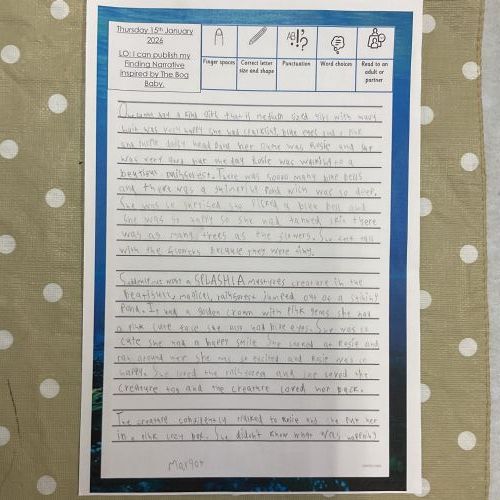 Thursday 15th January
2026
LO: I can publish my
Finding Narrative
inspired by The Bog
Baby.
Finger spaces
Correct letter
size and shape
Punctuation
Word choices
Read to an
adult or
partner
kind girl that is medium sized with
hair was very happy she had blue eyes and a pink
and head band her name was Rosie and she
was very and one day Rosie was to a
rainforest. There was soooo many blue bells
and there was a pond wich was so deep.
She was so she picked a blue bell and
She was so happy so she had skin there
was as many trees as the flowers. She felt tall
with the flowers because they were tiny.
was a SPLASH! A creature in the
rainforest jumped out of a
Pond. It had a golden crown with pink gems she had
a pink cute face she also had blue eyes. She was so
cute she had a happy smile She looked at Rosie and
ran around her she was so excited and Rosie was so
happy. She loved the rainforest and she loved the
creature too and the creature loved her back.
The creature confidently walked to Rosie and she put her
in a pink box. She didn't know what was
Margot